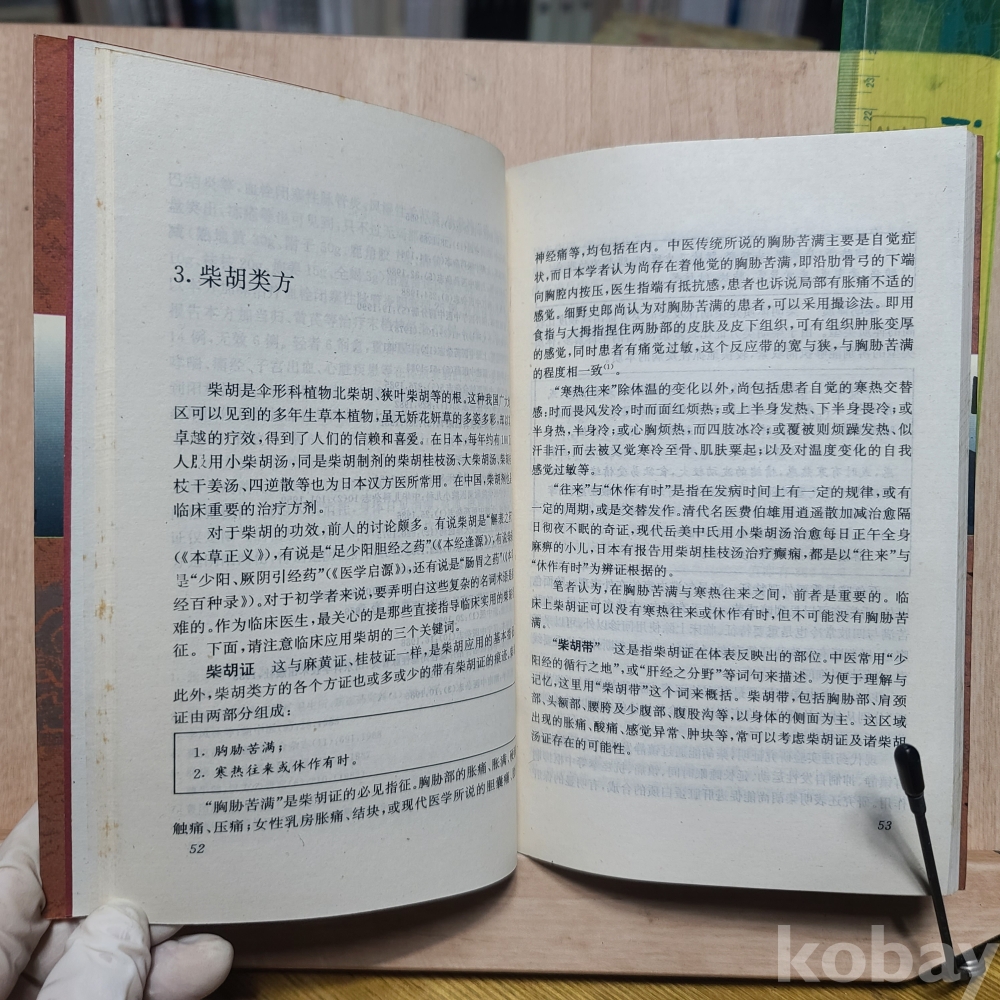 3. 柴胡类方
柴胡是伞形科植物北柴胡、狭叶柴胡等的根,这种我国广大
区可以见到的多年生草本植物,虽无娇花妍草的多姿多彩,
卓越的疗效,得到了人们的信赖和喜爱。在日本,每年约有100
人服用小柴胡汤,同是柴胡制剂的柴胡桂枝汤、大柴胡汤、
枝干姜汤、四逆散等也为日本汉方医所常用。在中国,柴胡剂也
临床重要的治疗方剂。
对于柴胡的功效,前人的讨论颇多。有说柴胡是“解表之药”
(《本草正义》),有说是“足少阳胆经之药”(《本经逢源》),有说
是“少阳、厥阴引经药”(《医学启源》),还有说是“肠胃之药”(
经百种录》)。对于初学者来说,要弄明白这些复杂的名词术语
难的。作为临床医生,最关心的是那些直接指导临床实用的
征。下面,请注意临床应用柴胡的三个关键词。
柴胡证 这与麻黄证、桂枝证一样,是柴胡应用的基本指
此外,柴胡类方的各个方证也或多或少的带有柴胡证的痕迹,
证由两部分组成:
1. 胸胁苦满;
2. 寒热往来或休作有时。
“胸胁苦满”是柴胡证的必见指征。胸胁部的胀痛、胀满、
触痛、压痛;女性乳房胀痛、结块;或现代医学所说的胆囊痛、
52
神经痛等,均包括在内。中医传统所说的胸胁苦满主要是自觉症
状,而日本学者认为尚存在着他觉的胸胁苦满,即沿肋骨弓的下端
向胸腔内按压,医生指端有抵抗感,患者也诉说局部有胀痛不适的
感觉。细野史郎尚认为对胸胁苦满的患者,可以采用撮诊法。即用
食指与大拇指捏住两胁部的皮肤及皮下组织,可有组织肿胀变厚
的感觉,同时患者有痛觉过敏,这个反应带的宽与狭,与胸胁苦满
的程度相一致⁽¹⁾。
“寒热往来”除体温的变化以外,尚包括患者自觉的寒热交替
感;时而畏风发冷,时而面红烦热;或上半身发热、下半身畏冷;或
半身热,半身冷;或心胸烦热,而四肢冰冷;或覆被则烦躁发热、似
汗非汗,而去被又觉寒冷至骨、肌肤粟起;以及对温度变化的自我
感觉过敏等。
“往来”与“休作有时”是指在发病时间上有一定的规律,或有
一定的周期,或是交替发作。清代名医费伯雄用逍遥散加减治愈隔
日彻夜不眠的奇证,现代岳美中氏用小柴胡汤治愈每日正午全身
麻痹的小儿,日本有报告用柴胡桂枝汤治疗癫痫,都是以“往来”与
“休作有时”为辨证根据的。
笔者认为,在胸胁苦满与寒热往来之间,前者是重要的。临
床上柴胡证可以没有寒热往来或休作有时,但不可能没有胸胁苦
满。
“柴胡带” 这是指柴胡证在体表反映出的部位。中医常用“少
阳经的循行之地”,或“肝经之分野”等词句来描述。为便于理解与
记忆,这里用“柴胡带”这个词来概括。柴胡带,包括胸胁部、肩颈
部、头额部、腰胯及少腹部、腹股沟等,以身体的侧面为主。这区域
出现的胀痛、酸痛、感觉异常、肿块等,常可以考虑柴胡证及诸柴胡
汤证存在的可能性。
53
kobay